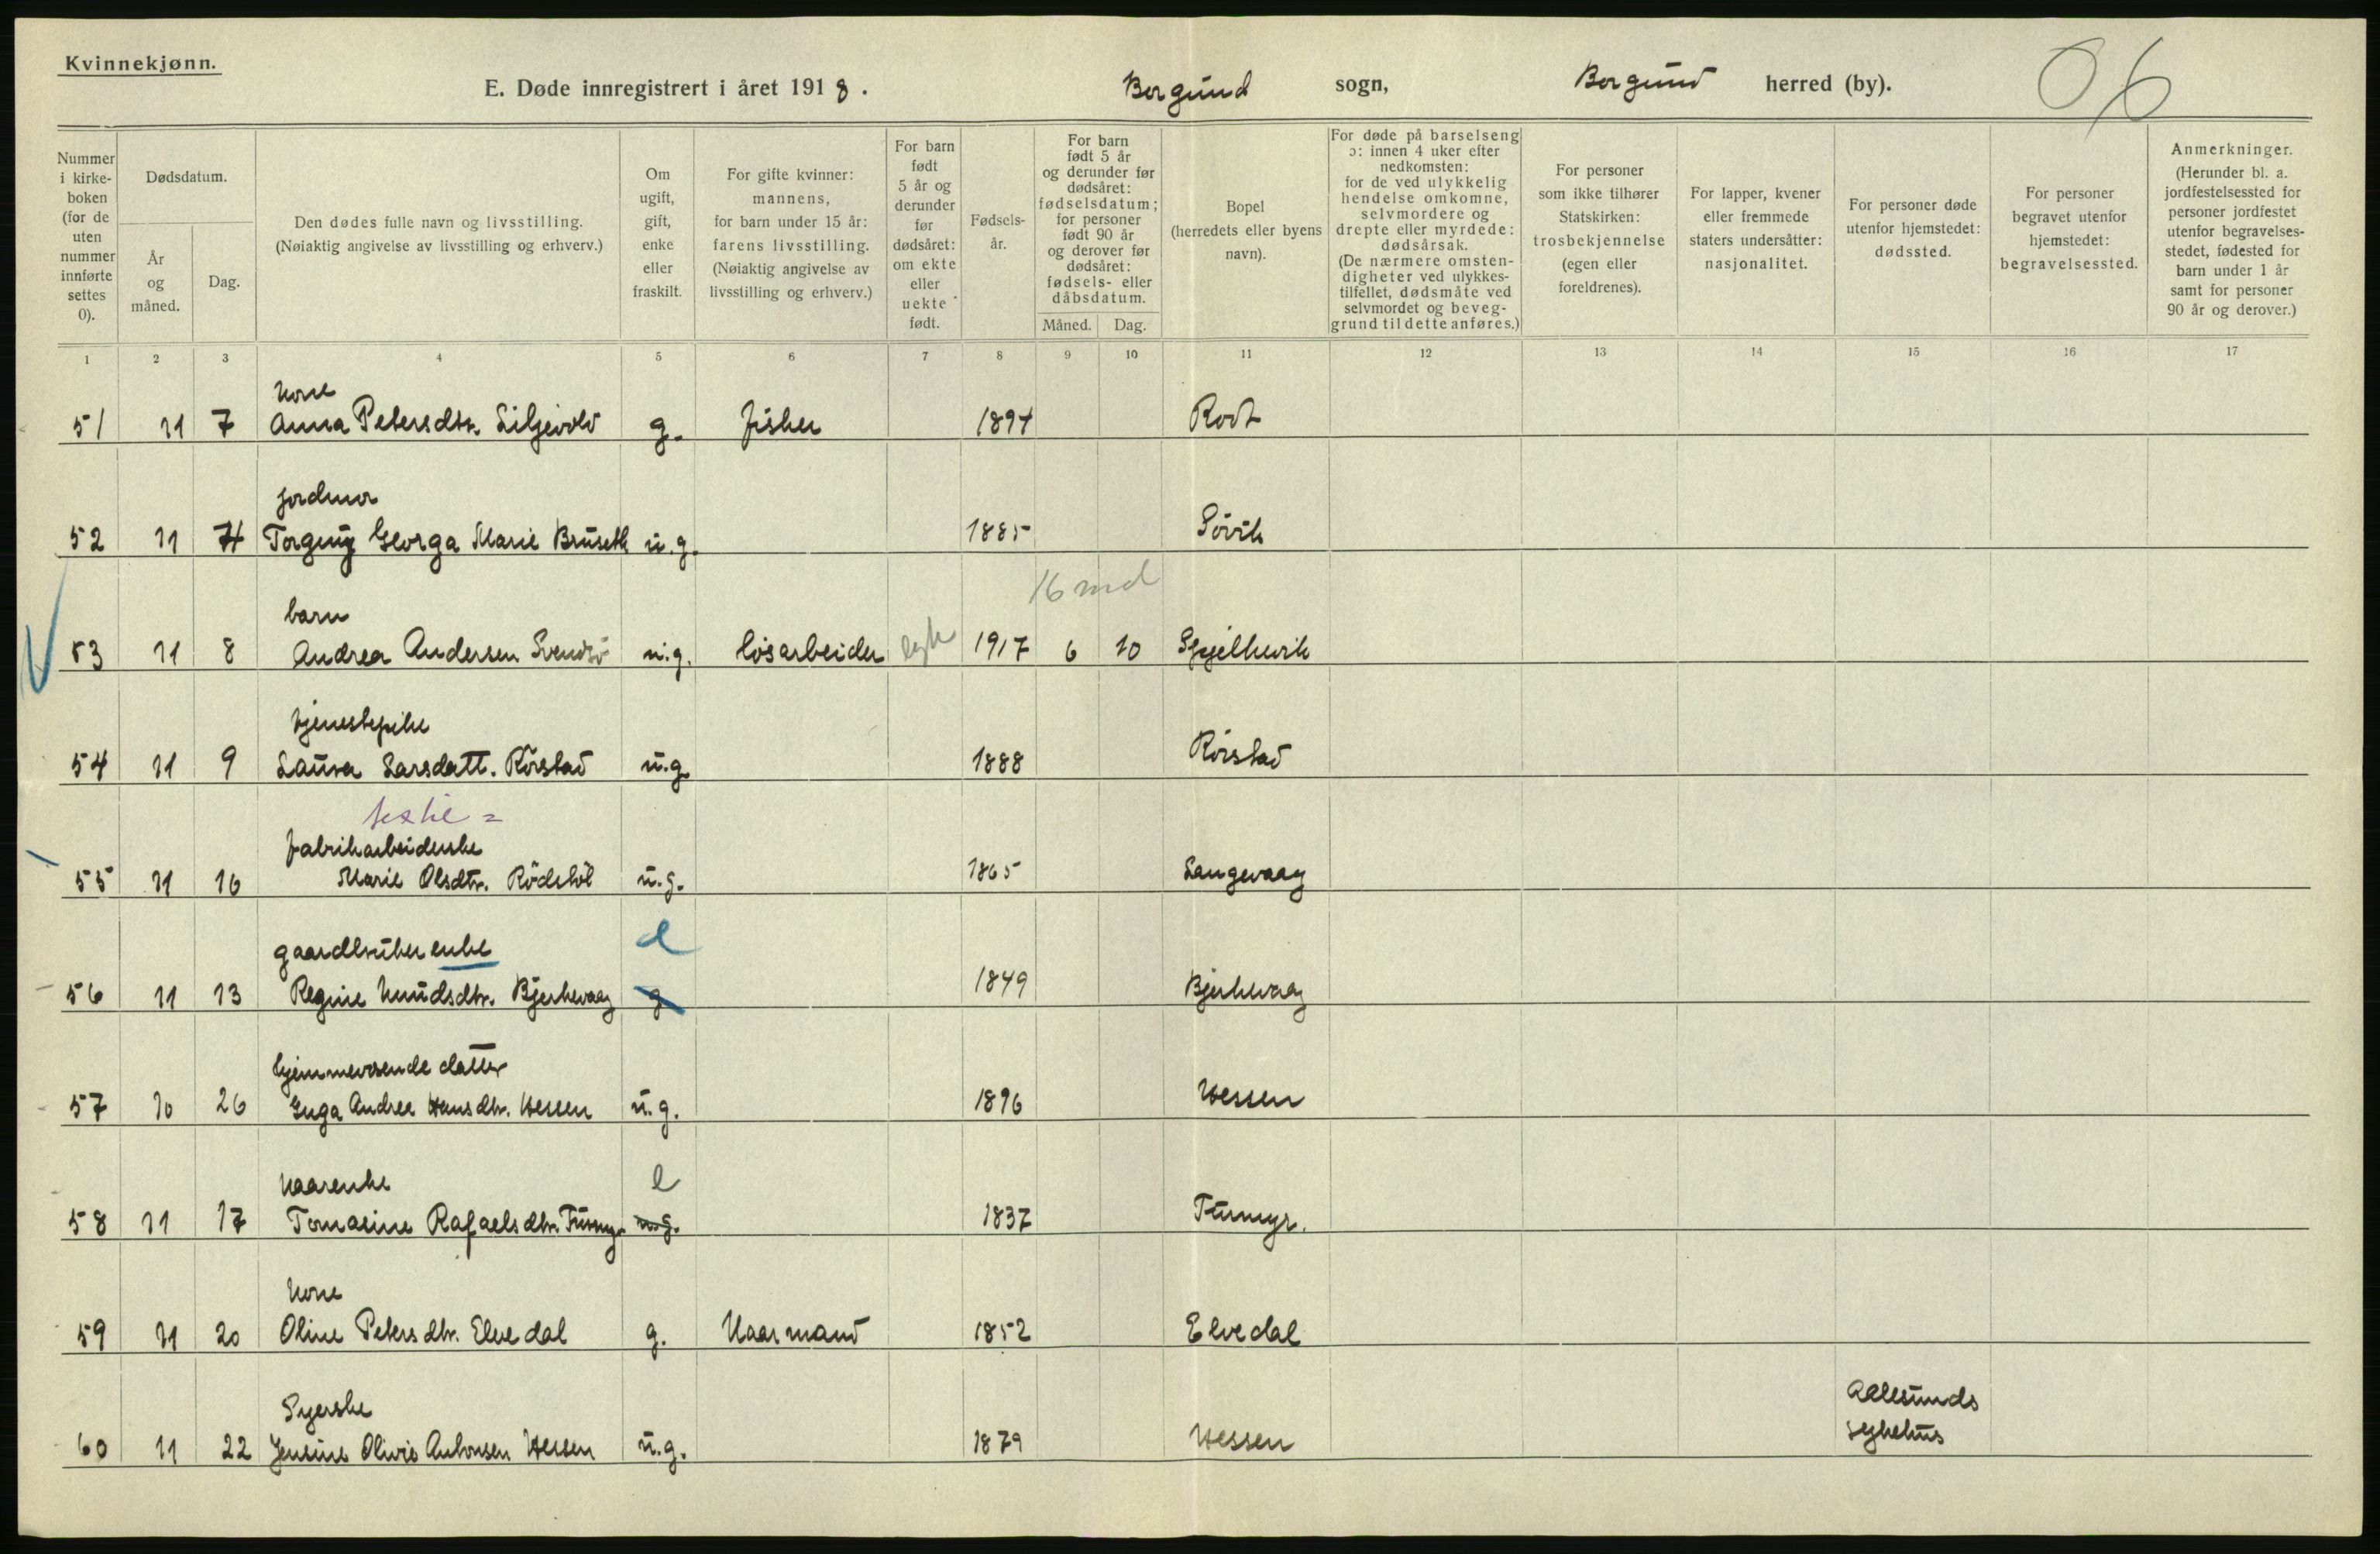 Kvinnekjønn.
E. Døde innregistrert i året 1918. Borgund sogn, Borgund herred (by).
Nummer i kirke-boken (for de uten nummer innførte settes 0).
Dødsdatum.
År og måned.
Dag.
Den dødes fulle navn og livsstilling.
(Nøiaktig angivelse av livsstilling og erhverv.)
Om ugift, gift, enke eller fraskilt.
For gifte kvinner: mannens, for barn under 15 år: farens livsstilling. (Nøiaktig angivelse av livsstilling og erhverv.)
For barn født 5 år og derunder før dødsåret: om ekte eller uekte født.
Fødsels-år.
For barn født 5 år og derunder før dødsåret: fødselsdatum; for personer født 90 år og derover før dødsåret: fødsels- eller dåbsdatum.
Måned. Dag.
Bopel (herredets eller byens navn).
For døde på barselseng ɔ: innen 4 uker efter nedkomsten: for de ved ulykkelig hendelse omkomne, selvmordere og drepte eller myrdede: dødsårsak. (De nærmere omsten-digheter ved ulykkes-tilfellet, dødsmåte ved selvmordet og beveg-grund til dette anføres.)
For personer som ikke tilhører Statskirken: trosbekjennelse (egen eller foreldrenes).
For lapper, kvener eller fremmede staters undersåtter: nasjonalitet.
For personer døde utenfor hjemstedet: dødssted.
For personer begravet utenfor hjemstedet: begravelsessted.
Anmerkninger. (Herunder bl. a. jordfestelsessted for personer jordfestet utenfor begravelses-stedet, fødested for barn under 1 år samt for personer 90 år og derover.)
1 2 3 4 5 6 7 8 9 10 11 12 13 14 15 16 17
Kone
51 11 7 Anna Petersdtr. Liljevold g. fisker 1894
jordmor
52 11 Georga Marie Bruseth u.g. 1885 Sövik
16 md
barn
53 11 8 Andrea Andersen u.g. lösarbeider 1917 6 10
tjenestepike
54 11 9 Laura Larsdatt. Rörstad u.g. 1888 Rörstad
fabrikarbeiderske
55 11 16 Marie Olsdtr. u.g. 1865 Langevaag
gaardbruker enke e
56 11 13 Regine Knudsdtr. Bjerkevaag g 1849 Bjerkevaag
hjemmeværende datter
57 10 26 Inga Andrea Hansdtr. Hessen u.g. 1896 Hessen
Kaarenke e
58 11 17 Tomasine Rafaelsdtr. Furmyr u.g. 1837 Furmyr.
Kone
59 11 20 Oline Petersdtr. Elvedal g. Kaarmand 1852 Elvedal
Syerske Aalesunds
60 11 22 Jensine Olivie Antonsen Hessen u.g. 1879 Hessen sykehus